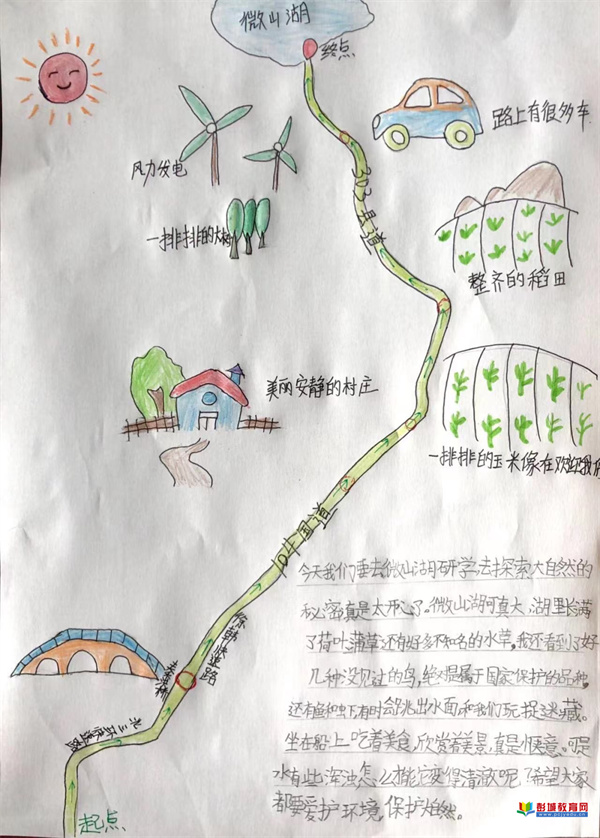 微山湖
终点
路上有很多车
风力发电
县道
一排排的大树
整齐的稻田
美丽安静的村庄
一排排的玉米像在欢迎我们
国道
快速路
北三环快速路
起点
今天我们要去微山湖研学,去探索大自然的
秘密真是太开心了。微山湖可真大,湖里长满
了荷叶蒲草还有好多不知名的水草,我还看到了好
几种没见过的鸟,绝对是属于国家保护的品种,
还有鱼和虾有时会跳出水面,和我们玩捉迷藏。
坐在船上吃着美食,欣赏着美景,真是惬意。可是
水有些浑浊怎么才能让它变得清澈呢?希望大家
都要爱护环境,保护大自然。
彭城教育网